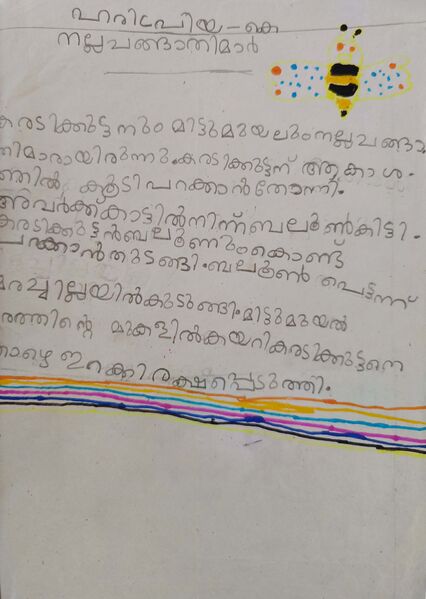 ഹരിപ്രിയ - കെ
നല്ലചങ്ങാതിമാർ
കരടിക്കുട്ടനും മിട്ടുമുയലുംനല്ലചങ്ങാ
തിമാരായിരുന്നു.കരടിക്കുട്ടന് ആകാശ-
ത്തിൽ കൂടിപറക്കാൻതോന്നി.
അവർക്ക്കാട്ടിൽനിന്ന്ബലൂൺകിട്ടി.
കരടിക്കുട്ടൻബലൂണുംകൊണ്ട്
പറക്കാൻതുടങ്ങി.ബലൂൺ പെട്ടന്ന്
മരച്ചില്ലയിൽകുടുങ്ങി.മിട്ടുമുയൽ
മരത്തിന്റെ മുകളിൽകയറികരടിക്കുട്ടനെ
താഴെ ഇറക്കിരക്ഷപ്പെടുത്തി.